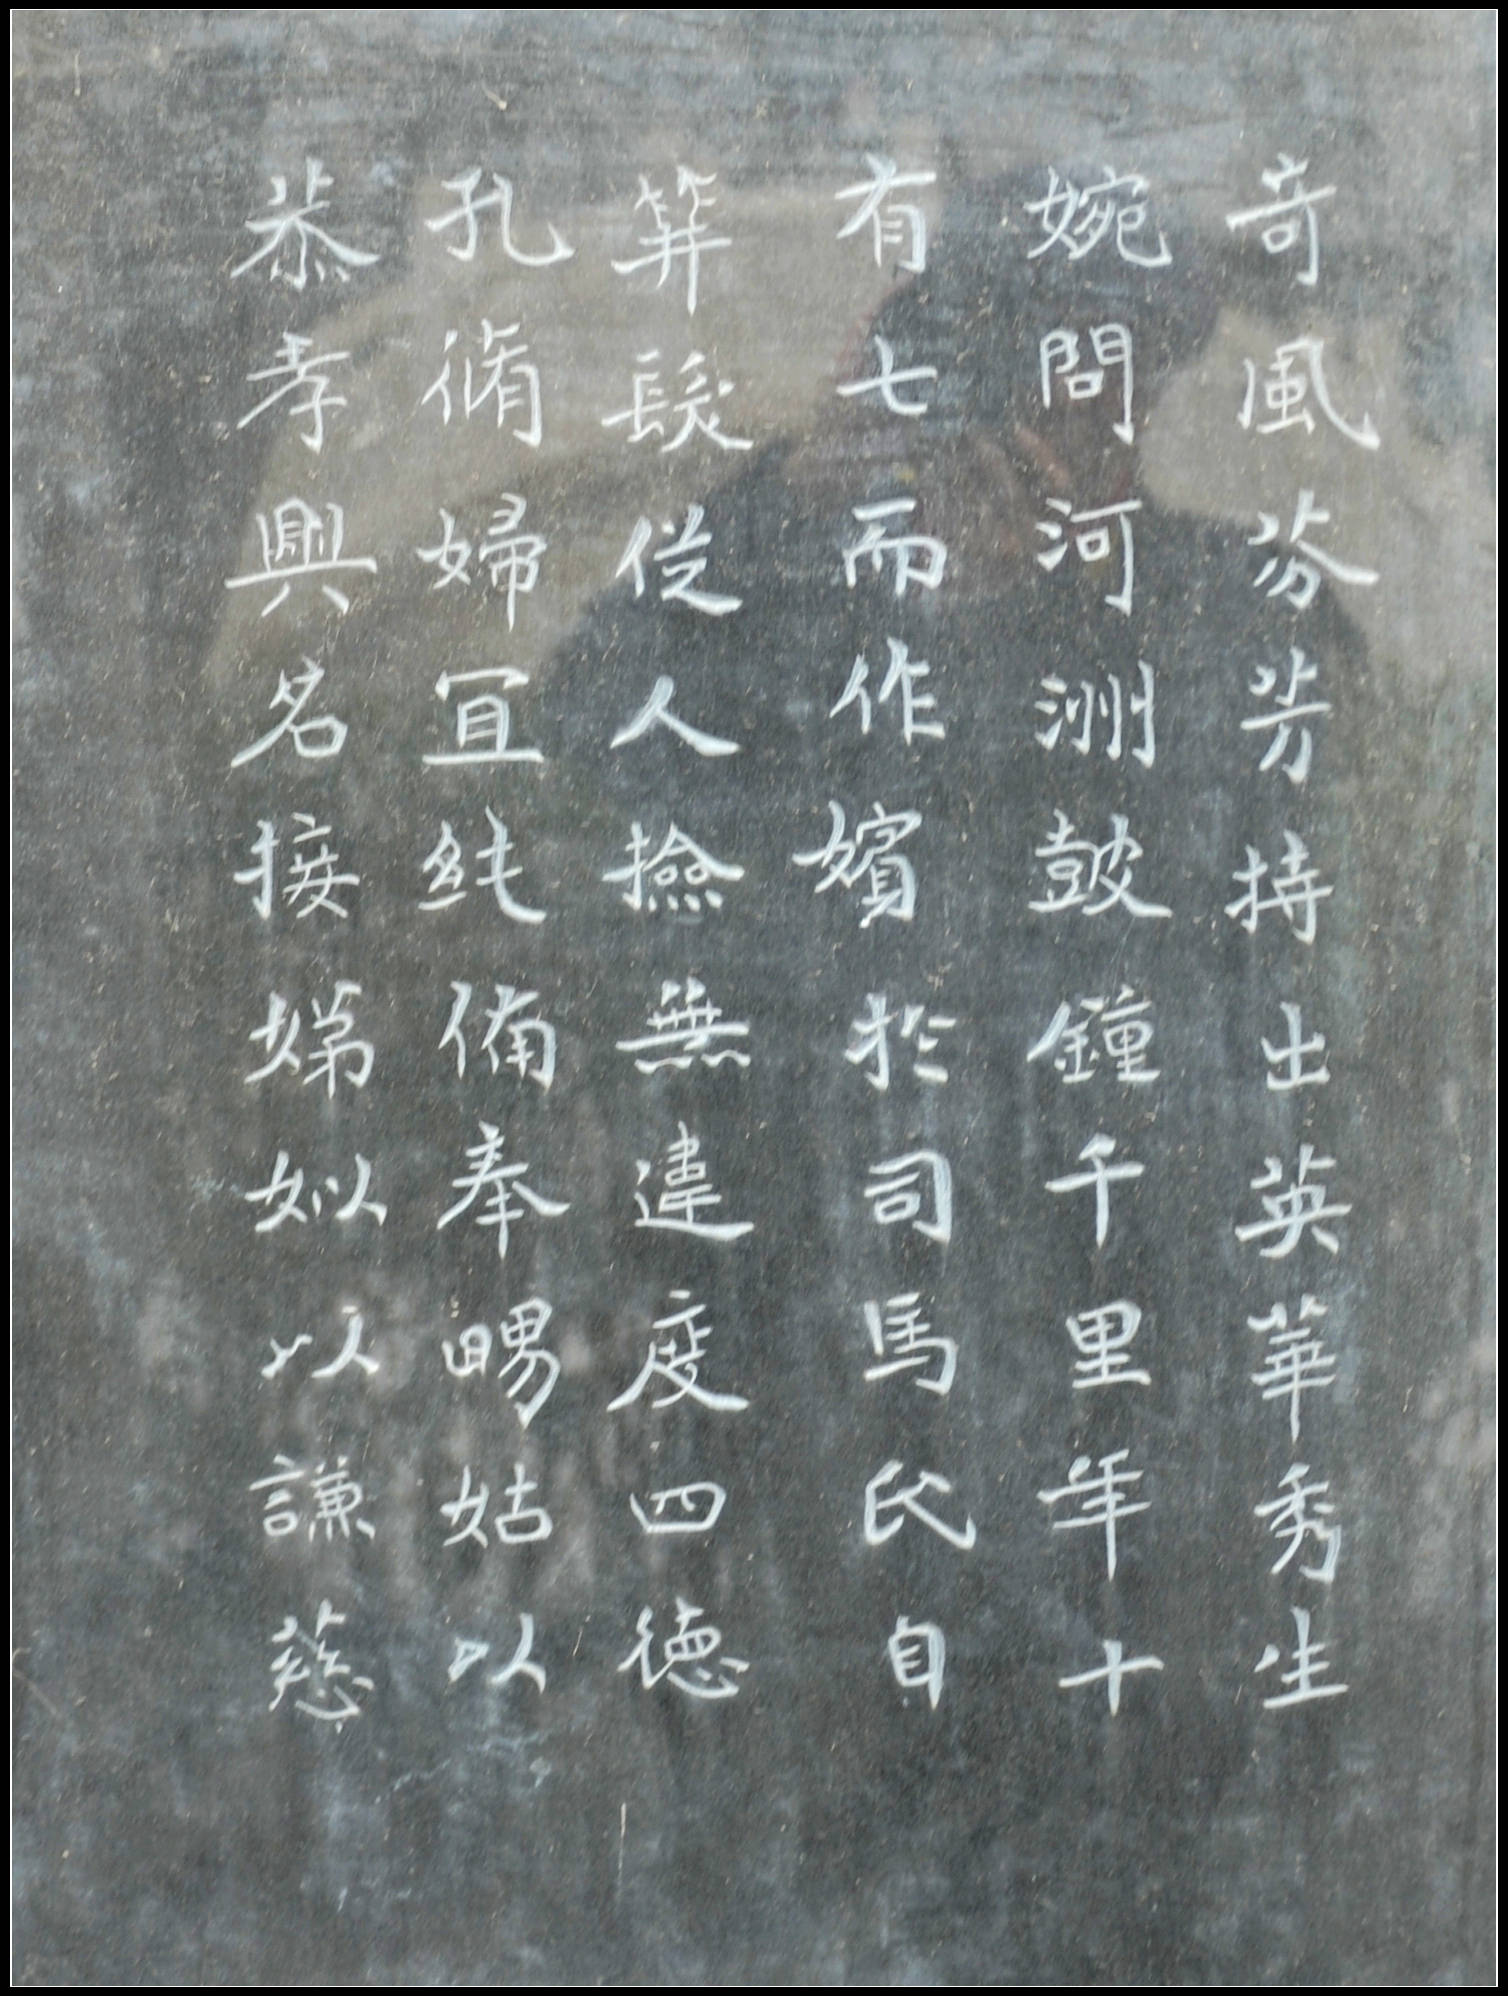 奇風芬芳特出英華秀生
婉問河洲鼓鐘千里年十
有七而作嬪於司馬氏自
笄髮從人撿無違度四德
孔脩婦宜純備奉舅姑以
恭孝興名接娣姒以謙慈